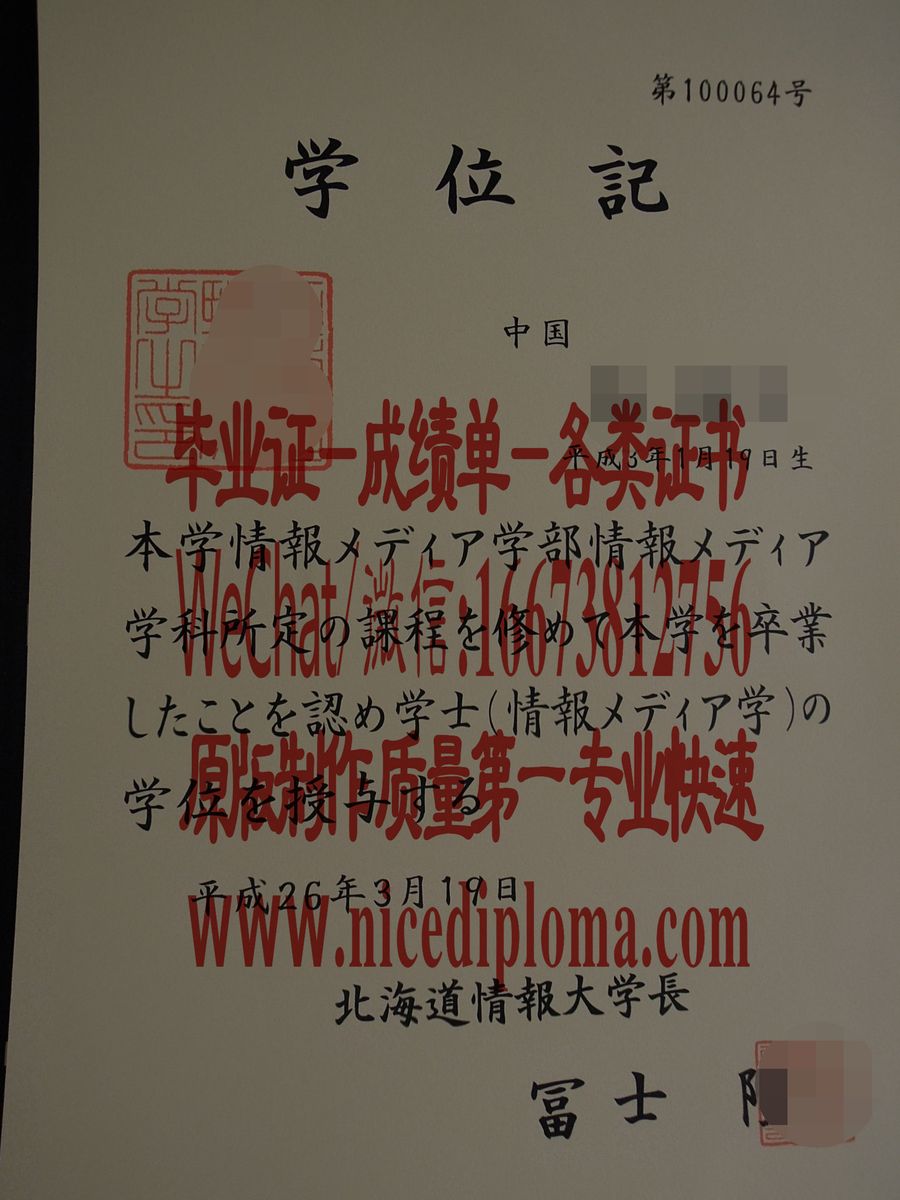 第100064号
学位記
中国
毕业证一成绩单一各类证书
平成3年1月19日生
本学情報メディア学部情報メディア
WeChat/微信:16673812756
学科所定の課程を修めて本学を卒業
したことを認め学士(情報メディア学)の
原版制作质量第一专业快速
学位を授与する
平成26年3月19日
www.nicediploma.com
北海道情報大学長
冨士